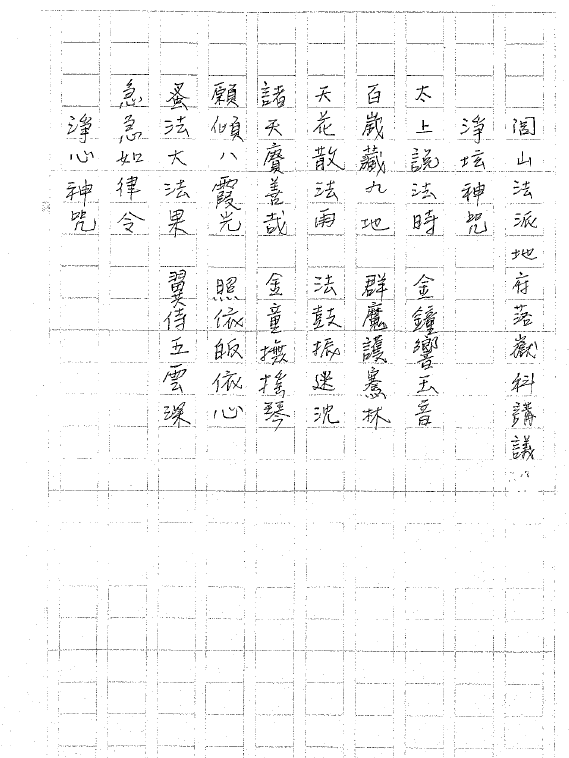 閭山法派地府落嶽科講議
淨坛神咒
太上說法時 金鐘響玉音
百歲藏九地 群魔護騫林
天花散法雨 法鼓振迷沈
諸天賡善哉 金童撫搖琴
願傾八霞光 照依皈依心
蚤法大法果 翼侍五雲深
急急如律令
淨心神咒